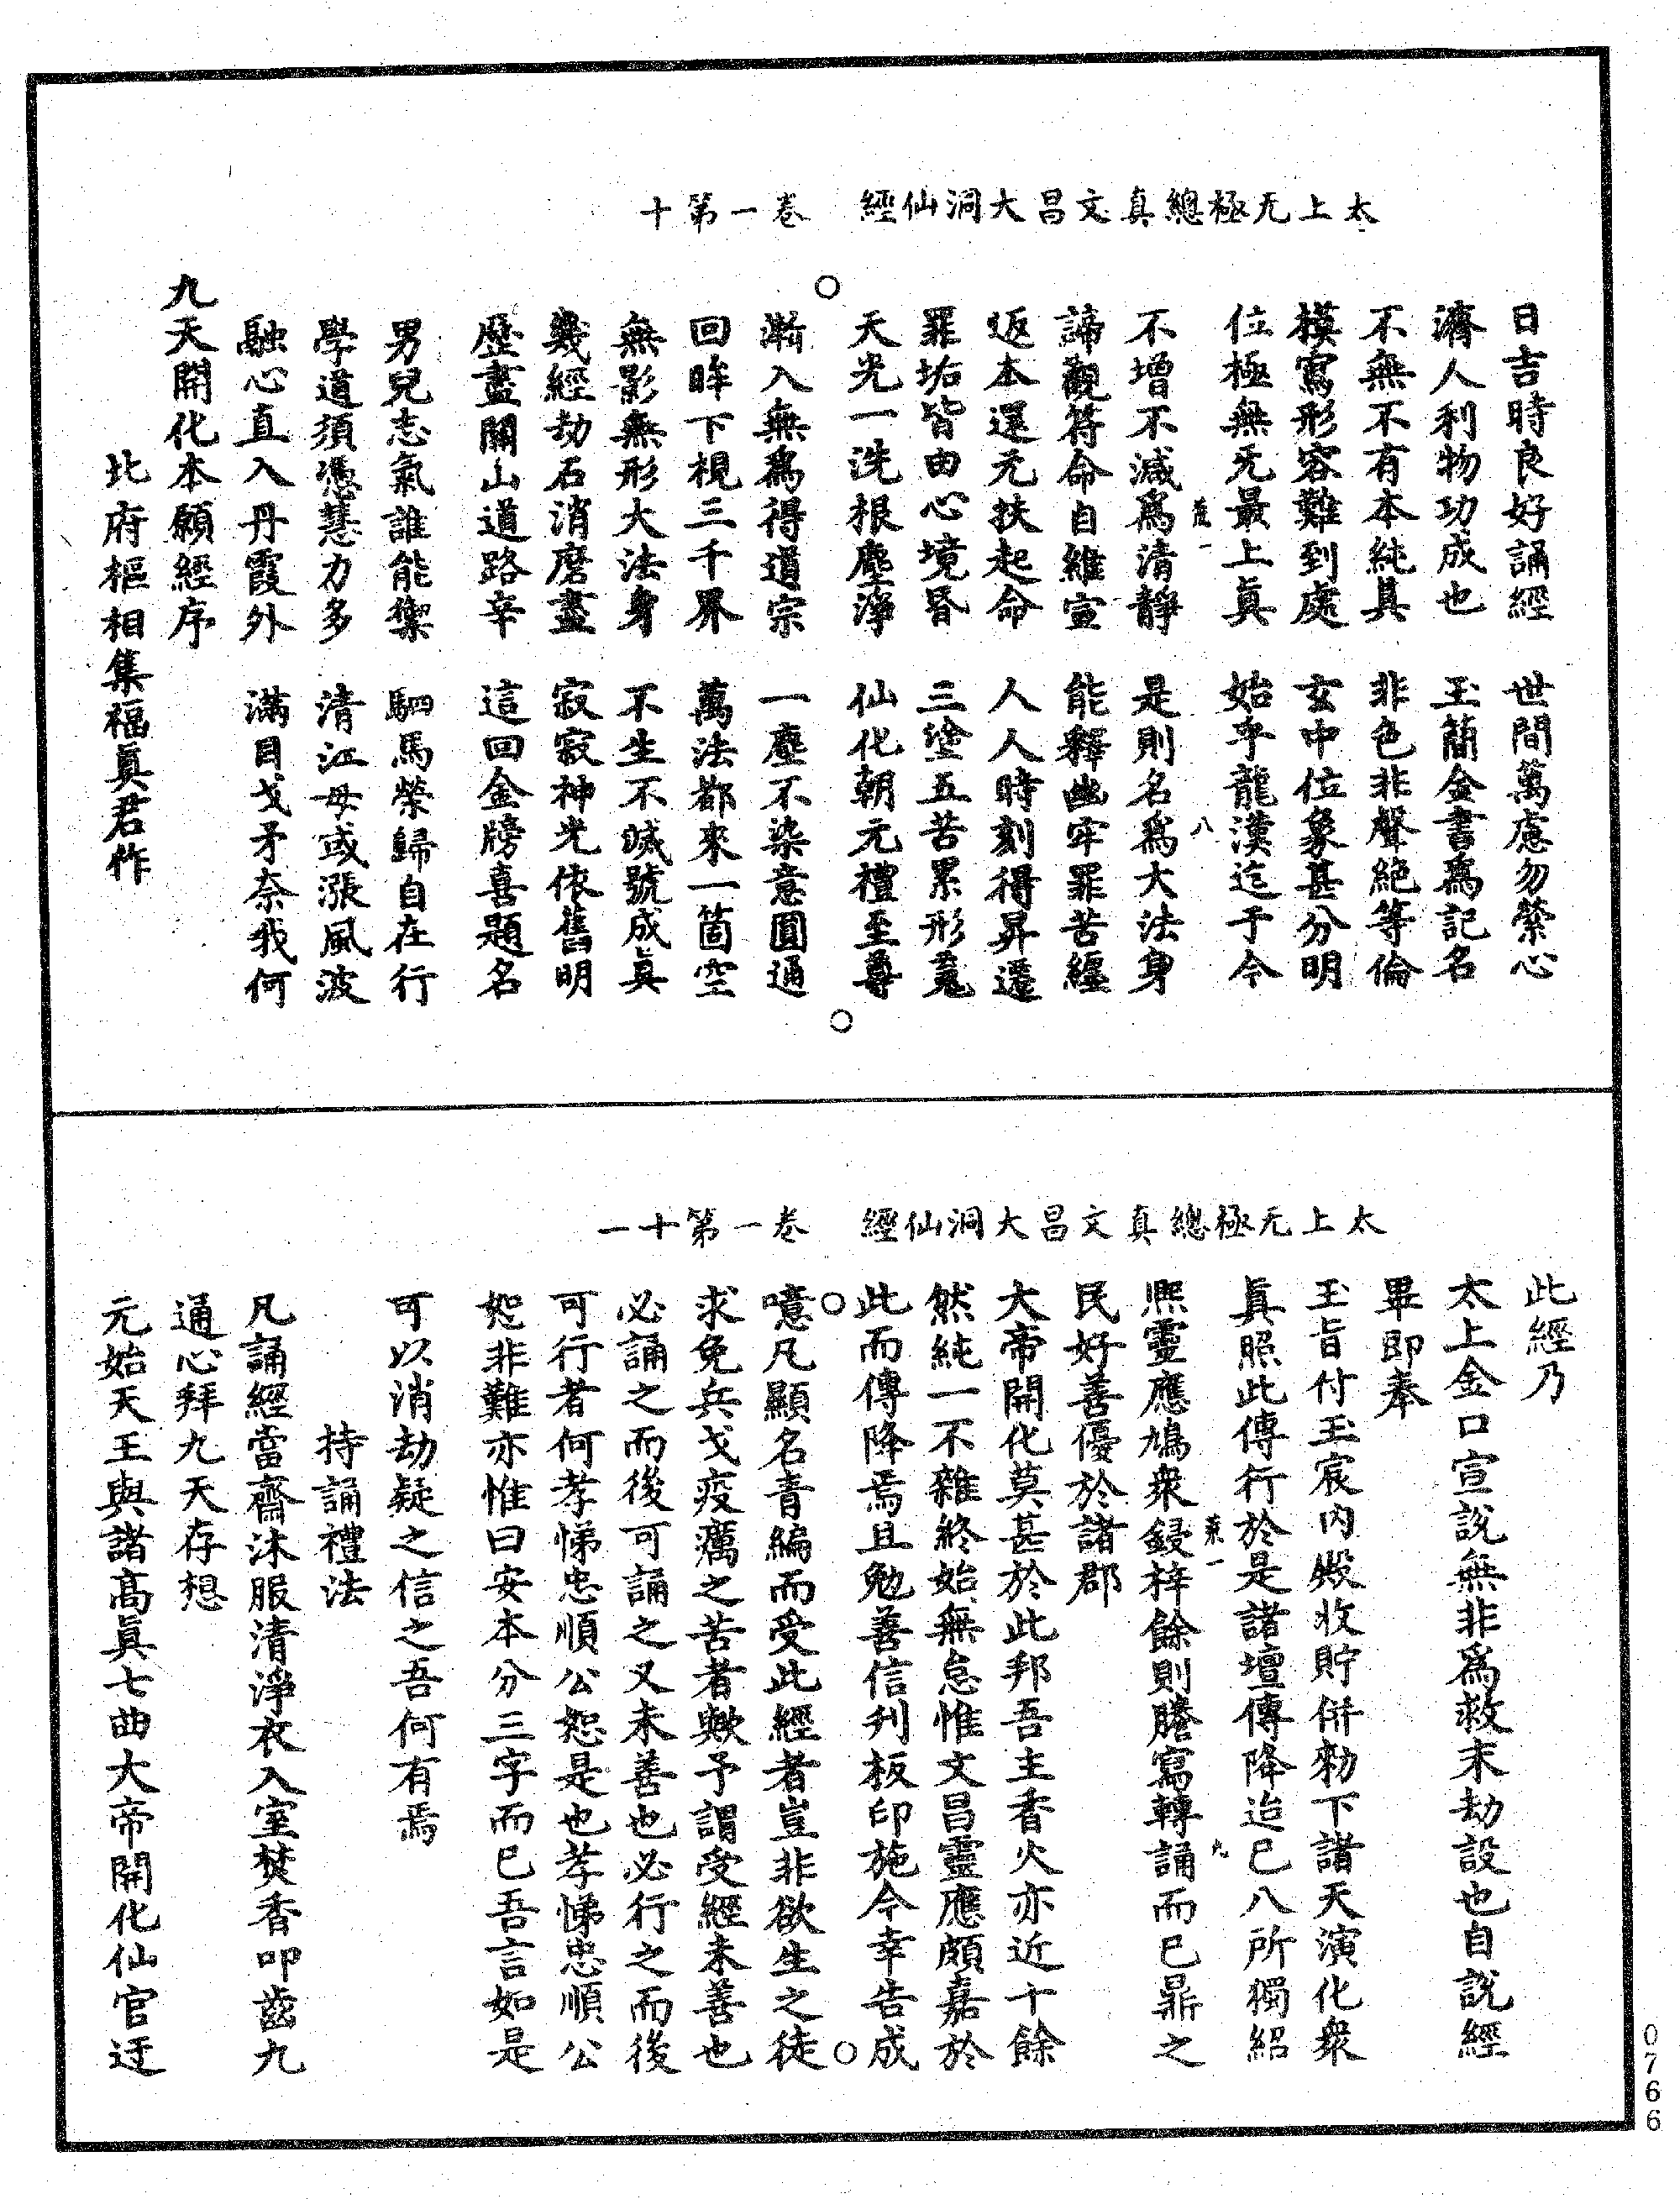 太上无極總真文昌大洞仙經　卷一第十
日吉時良好誦經　世間萬慮勿縈心
濟人利物功成也　玉蘭金書爲記名
不無不有本純真　非色非聲絕等倫
模寫形容難到處　玄中位象甚分明
位極無无最上眞　始乎龍漢迄于今
不增不減爲清靜　是則名爲大法身
諦觀符命自維宣　能釋幽牢罪苦纏
返本還元扶起命　人人時刻得昇遷
罪垢皆由心境昏　三塗五苦累形䰟
天光一洗根塵淨　仙化朝元禮至尊
漸入無爲得道宗　一塵不染意圓通
回眸下視三千界　萬法都來一箇空
無影無形大法身　不生不滅號成眞
幾經劫石消磨盡　寂寂神光依舊明
歷盡關山道路辛　這回金牓喜題名
男兒志氣誰能禦　駟馬榮歸自在行
學道須憑慧力多　清江毋或漲風波
融心直入丹霞外　滿目戈矛奈我何
九天開化本願經序
北府樞相集福眞君作
太上无極總真文昌大洞仙經　卷一第十一
此經乃
太上金口宣說無非爲救末劫設也自說經
畢即奉
玉旨付玉宸內殿收貯併勑下諸天演化衆
眞照此傳行於是諸壇傳降迨已八所獨紹
熙靈應鳩衆鋟梓餘則謄寫轉誦而已鼎之
民好善優於諸郡
大帝開化莫甚於此邦吾主香火亦近十餘
然純一不雜終始無怠惟文昌靈應頗嘉於
此而傳降焉且勉善信刋板印施今幸告成
噫凡顯名青編而受此經者豈非欲生之徒
求免兵戈疫癘之苦者歟予謂受經未善也
必誦之而後可誦之又未善也必行之而後
可行者何孝悌忠順公恕是也孝悌忠順公
恕非難亦惟曰安本分三字而已吾言如是
可以消劫疑之信之吾何有焉
持誦禮法
凡誦經當齋沐服清淨衣入室焚香叩齒九
通心拜九天存想
元始天王與諸高眞七曲大帝開化仙官迓
0766